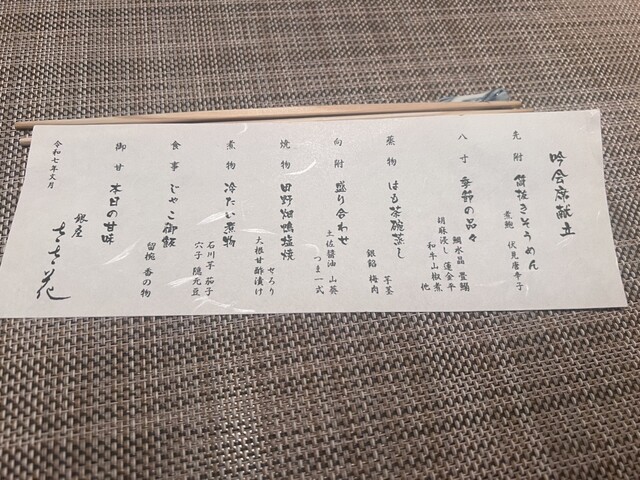 吟会席献立
先附 筒抜きそうめん
煮鮑 伏見唐辛子
八寸 季節の品々
鯛水晶 蓮金平
胡麻浸し 和牛山椒煮
他
蒸物 はも茶碗蒸し
銀餡 梅肉 芋茎
向附 盛り合わせ
土佐醤油 山葵
つま一式
焼物 田野畑鴨塩焼
大根甘酢漬け
せろり
煮物 冷たい煮物
石川芋 茄子
穴子 隠元豆
食事 じゃこ御飯
留椀 香の物
御甘 本日の甘味
令和七年文月
銀座